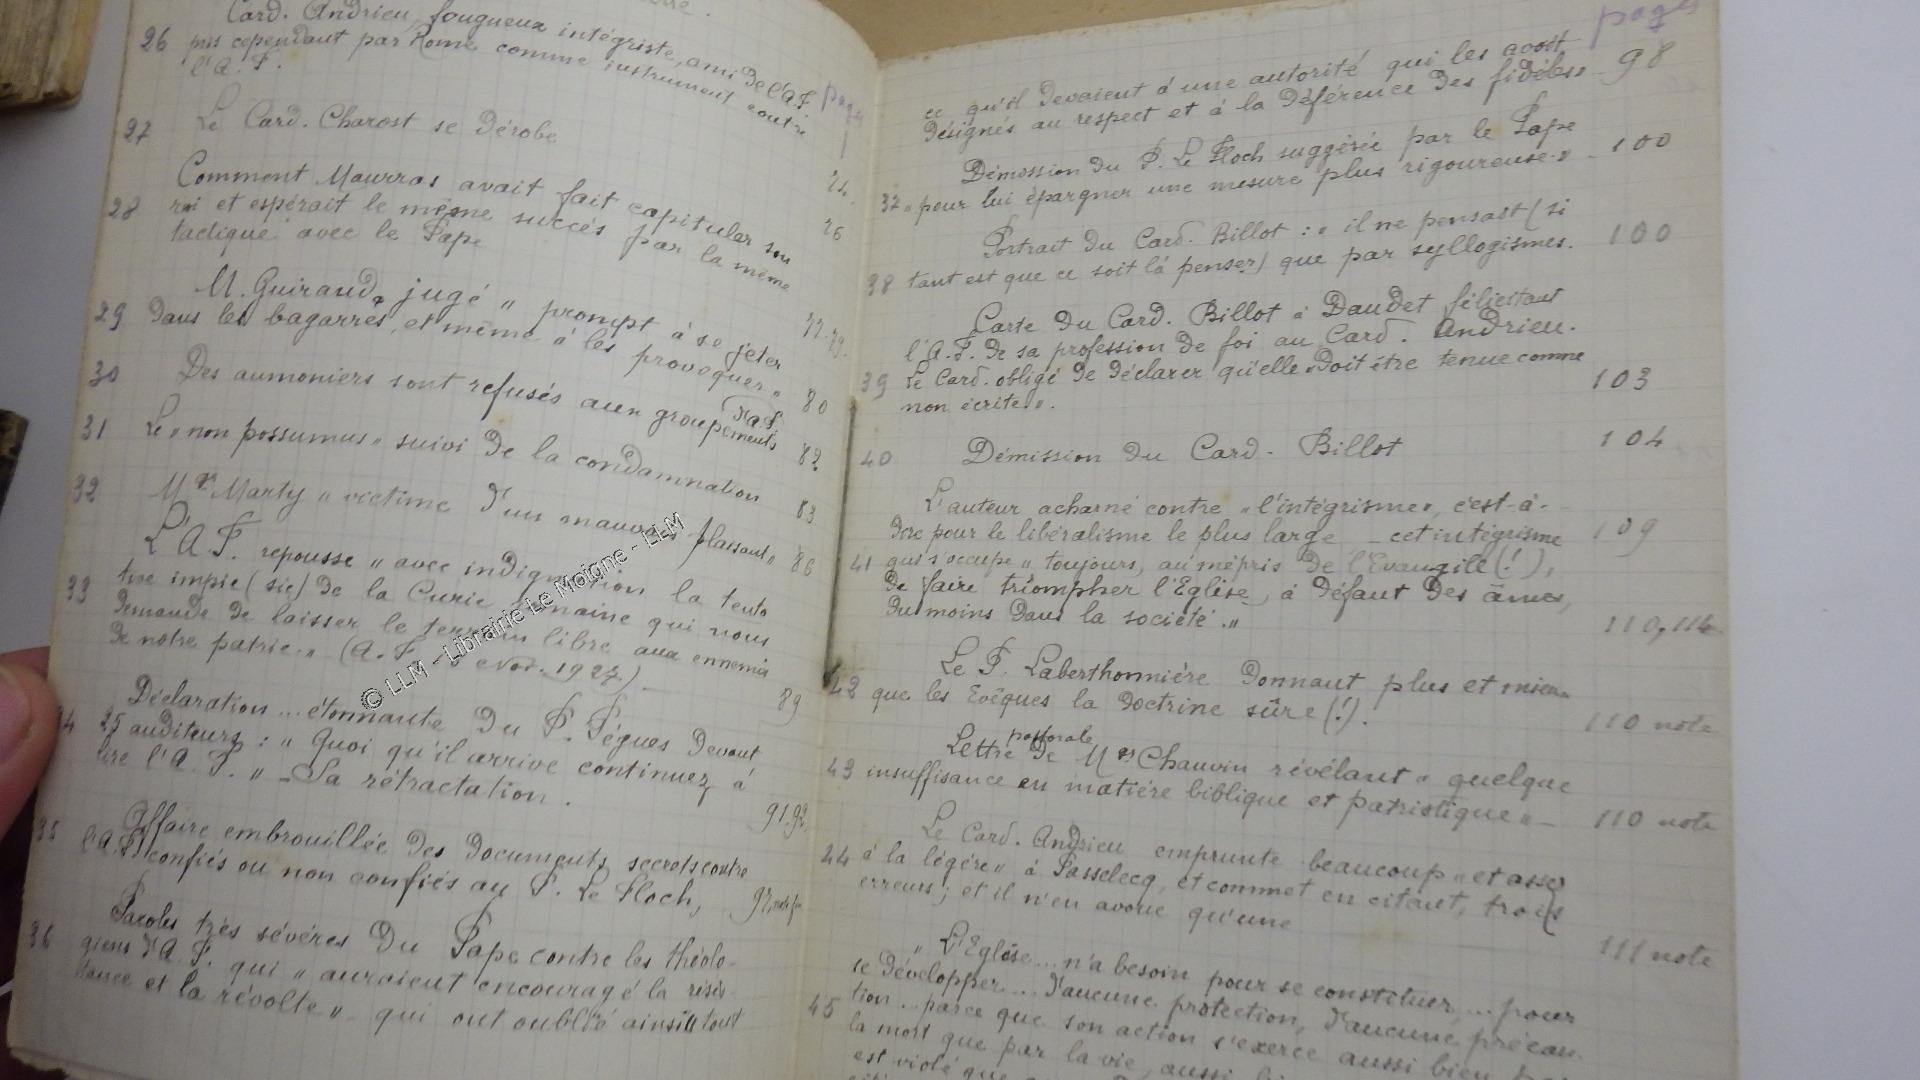 Card. Andrieu, fougueux intégriste, ami de l'A.F.
26 pris cependant par Rome comme instrument contre
l'A.F.
pages
27 Le Card. Charost se dérobe
24
Comment Maurras avait fait capituler son
28 roi et espérait le même succès par la même
tactique avec le Pape
26
M. Guiraud, jugé " prompt à se jeter
29 dans les bagarres, et même à les provoquer "
77.79.
30 Des aumoniers sont refusés aux groupements
d'A.F.
80
31 Le " non possumus " suivi de la condamnation
82
32 Mgr Marty " victime d'un mauvais plaisant "
83
L'A.F. repousse " avec indignation la tenta
86
33 tive impie (sic) de la Curie romaine qui nous
demande de laisser le terrain libre aux ennemis
de notre patrie. " (A.F. nov. 1927)
Déclaration ... étonnante du P. Pégues devant
89
34 25 auditeurs : " Quoi qu'il arrive continuez à
lire l'A.F. " - Sa rétractation.
91.92.
Affaire embrouillée des documents secrets contre
35 l'A.F. confiés ou non confiés au P. Le Floch,
92, note
Paroles très sévères du Pape contre les théolo-
36 giens d'A.F. qui " auraient encouragé la résis-
tance et la révolte " - qui ont oublié ainsi tout
pages
ce qu'il devaient à une autorité qui les avait
désignés au respect et à la déférence des fidèles "
98
Démission du P. Le Floch suggérée par le Pape
37 " pour lui épargner une mesure plus rigoureuse. "
100
Portrait du Card. Billot : " il ne pensait (si
38 tant est que ce soit là penser) que par syllogismes.
100
Carte du Card. Billot à Daudet félicitant
l'A.F. de sa profession de foi au Card. Andrieu.
39 Le Card. obligé de déclarer qu'elle " doit être tenue comme
non écrite. ".
103
40 Démission du Card. Billot
104
L'auteur acharné contre " l'intégrisme ", c'est-à-
dire pour le libéralisme le plus large - cet intégrisme
109
41 qui s'occupe " toujours, au mépris de l'Evangile (!),
de faire triompher l'Eglise, à défaut des âmes,
du moins dans la société. "
110, 114
Le P. Laberthonnière donnant plus et mieux
42 que les Evêques la doctrine sûre (!).
110 note
Lettre pastorale de Mgr Chauvin révélant " quelque
43 insuffisance en matière biblique et patristique " -
110 note
Le Card. Andrieu emprunte beaucoup " et assez
44 à la légère " à Passelecq, et commet en citant, trois
erreurs ; et il n'en avoue qu'une
111 note
" L'Eglise ... n'a besoin pour se constituer, ... pour
se développer ... d'aucune protection, d'aucune précau-
45 tion ... parce que son action s'exerce aussi bien par
la mort que par la vie, aussi
est violé que
© LLM - Librairie Le Moigne - LLM